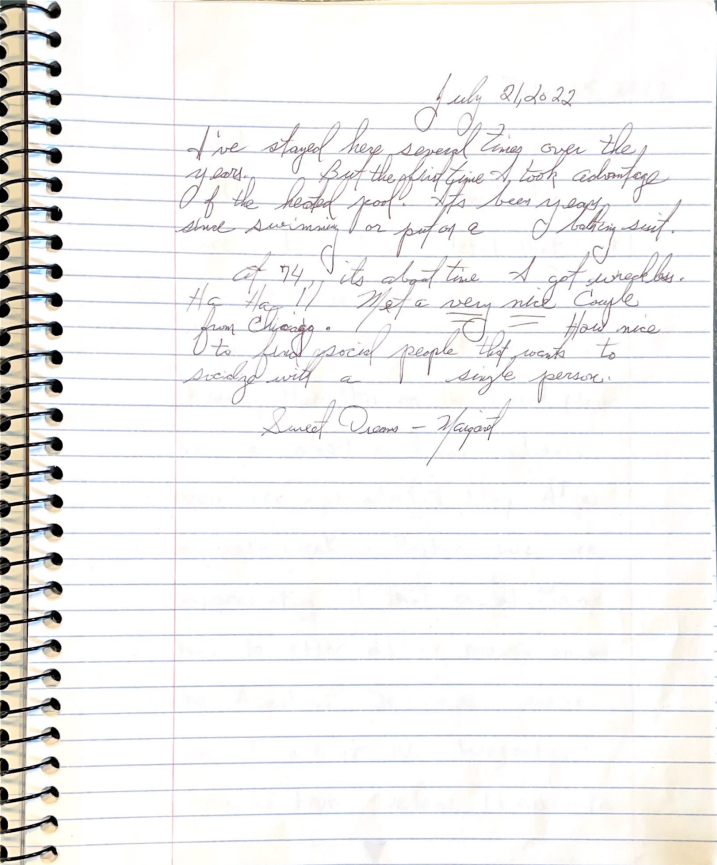 July 21, 2022
I've stayed here several times over the
years. But the first time I took advantage
Of the heated pool. Its been years
since swimming or put on a bathing suit.
at 74, its about time I got wreckless.
Ha Ha!! Met a very nice Couple
from Chicago. How nice
to find social people that wants to
socialize with a single person.
Sweet Dreams - Margaret